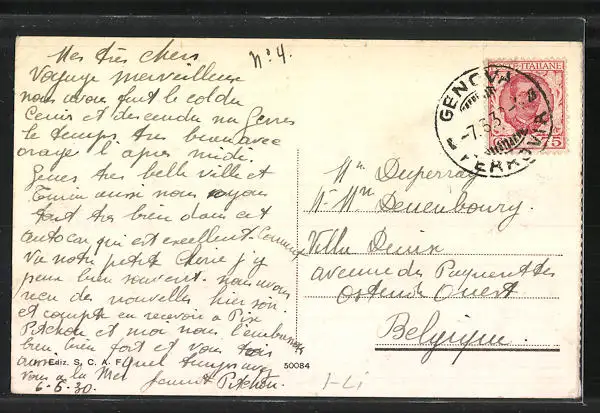 Mes très chers
n° 4.
Voyage merveilleux
nous avons fait le col du
Cenis et descendu sur Genes
le temps très beau avec
orages l'après midi.
Genes très belle ville et
Turin aussi nous voyons
tout très bien dans cet
autocar qui est excellent. Comment
va notre petite j'y
pense bien souvent. nous avons
reçu des nouvelles hier soir
et compte en recevoir à Pise
Pitchou et moi nous l'embrassons
bien bien fort et vous tous
aussi Quel temps avez
vous à la Mer
6-6-30. Pitchou.
Ediz. S. C. A. F.
50084
POSTE ITALIANE
75
GENOVA
-7.6.30
FERROVIA
Duperray
Villa Denise
avenue des
Ostende Ouest
Belgique.
1-Li